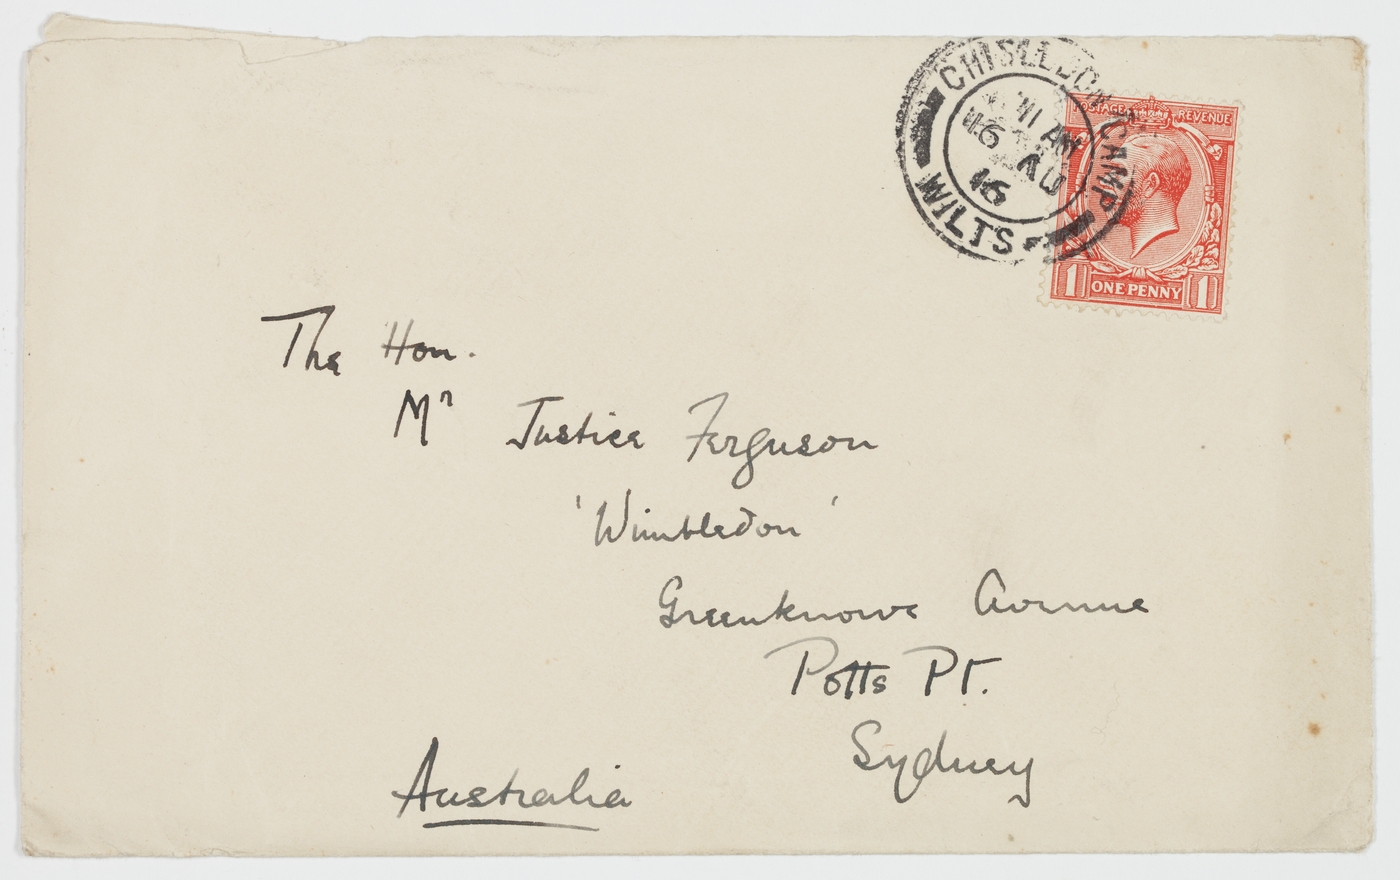 CHISLEDON CAMP
AU
16
WILTS
POSTAGE REVENUE
1 ONE PENNY 1
The Hon.
Mr Justice Ferguson
'Wimbledon'
Greenknowe Avenue
Potts Pt.
Sydney
Australia